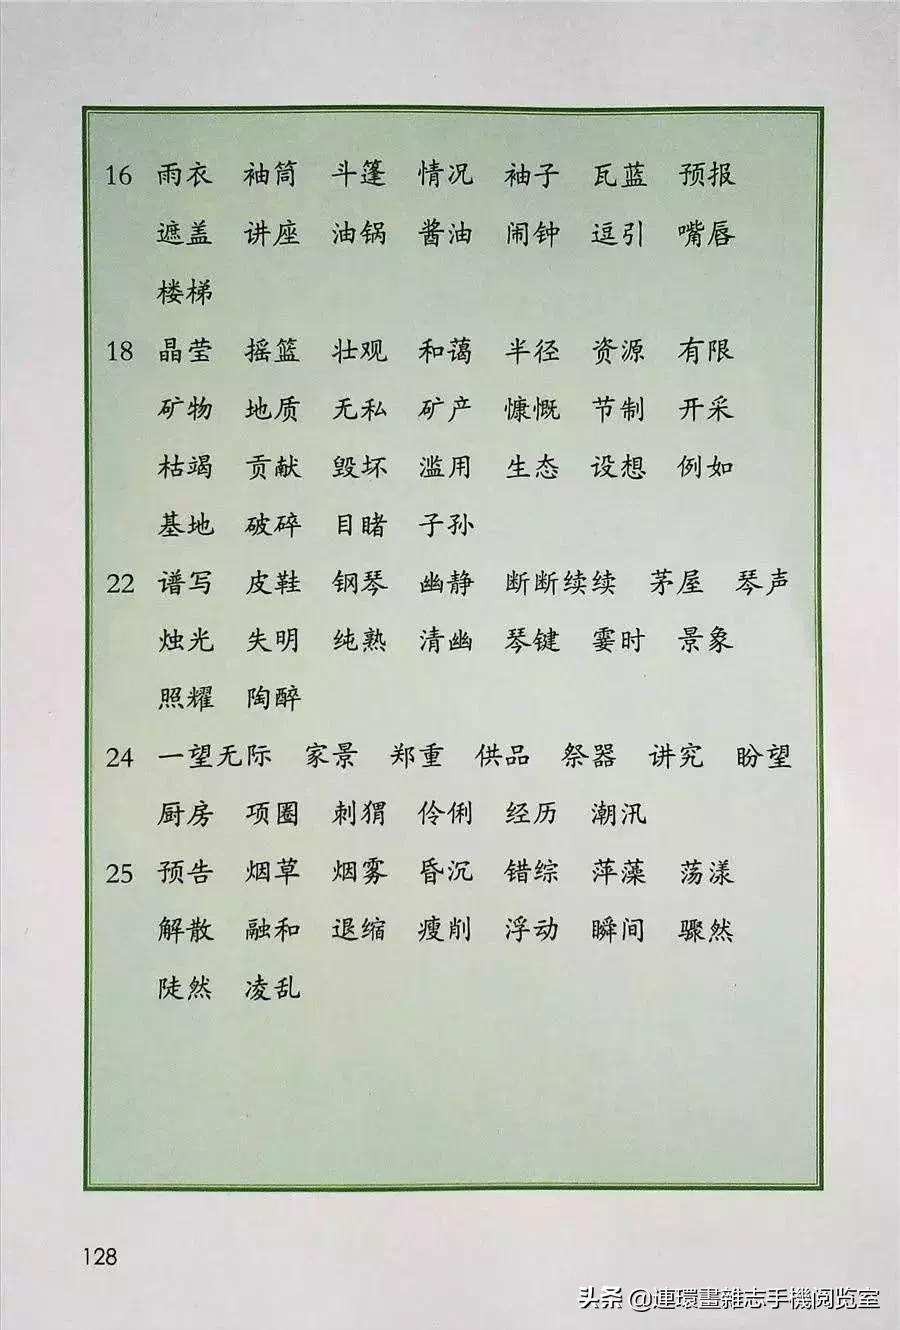 16 雨衣 袖筒 斗篷 情况 袖子 瓦蓝 预报
遮盖 讲座 油锅 酱油 闹钟 逗引 嘴唇
楼梯
18 晶莹 摇篮 壮观 和蔼 半径 资源 有限
矿物 地质 无私 矿产 慷慨 节制 开采
枯竭 贡献 毁坏 滥用 生态 设想 例如
基地 破碎 目睹 子孙
22 谱写 皮鞋 钢琴 幽静 断断续续 茅屋 琴声
烛光 失明 纯熟 清幽 琴键 霎时 景象
照耀 陶醉
24 一望无际 家景 郑重 供品 祭器 讲究 盼望
厨房 项圈 刺猬 伶俐 经历 潮汛
25 预告 烟草 烟雾 昏沉 错综 萍藻 荡漾
解散 融和 退缩 瘦削 浮动 瞬间 骤然
陡然 凌乱
128
头条 @連環畫雜志手機阅览室